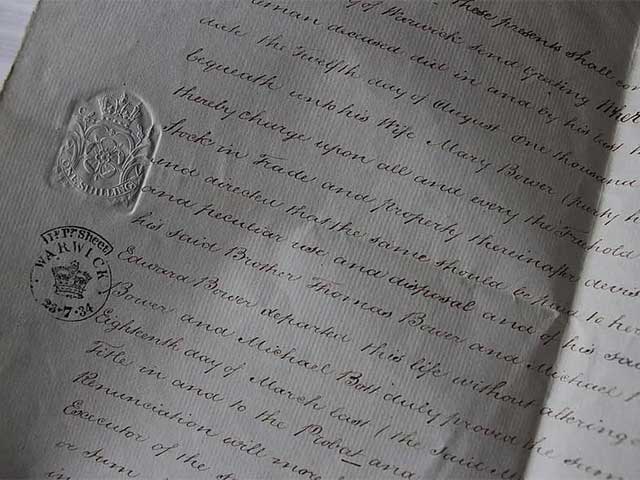 of Warwick send Greeting Wher
deceased did in and by his last
date the Twelfth day of August One thousand
bequeath unto his Wife Mary Bower (party h
thereby charge upon all and every the Freehold
Stock in Trade and property thereinafter devis
and directed that the same should be paid to her
and peculiar use and disposal and of his said
his said Brother Thomas Bower and Michael
Edward Bower departed this life without altering
Bower and Michael Bott duly proved the same
Eighteenth day of March last (the said M
Title in and to the Probat and
Renunciation will more
Executor of the s
or sum
in
ONE SHILLING
Sheet
WARWICK
23·7·34